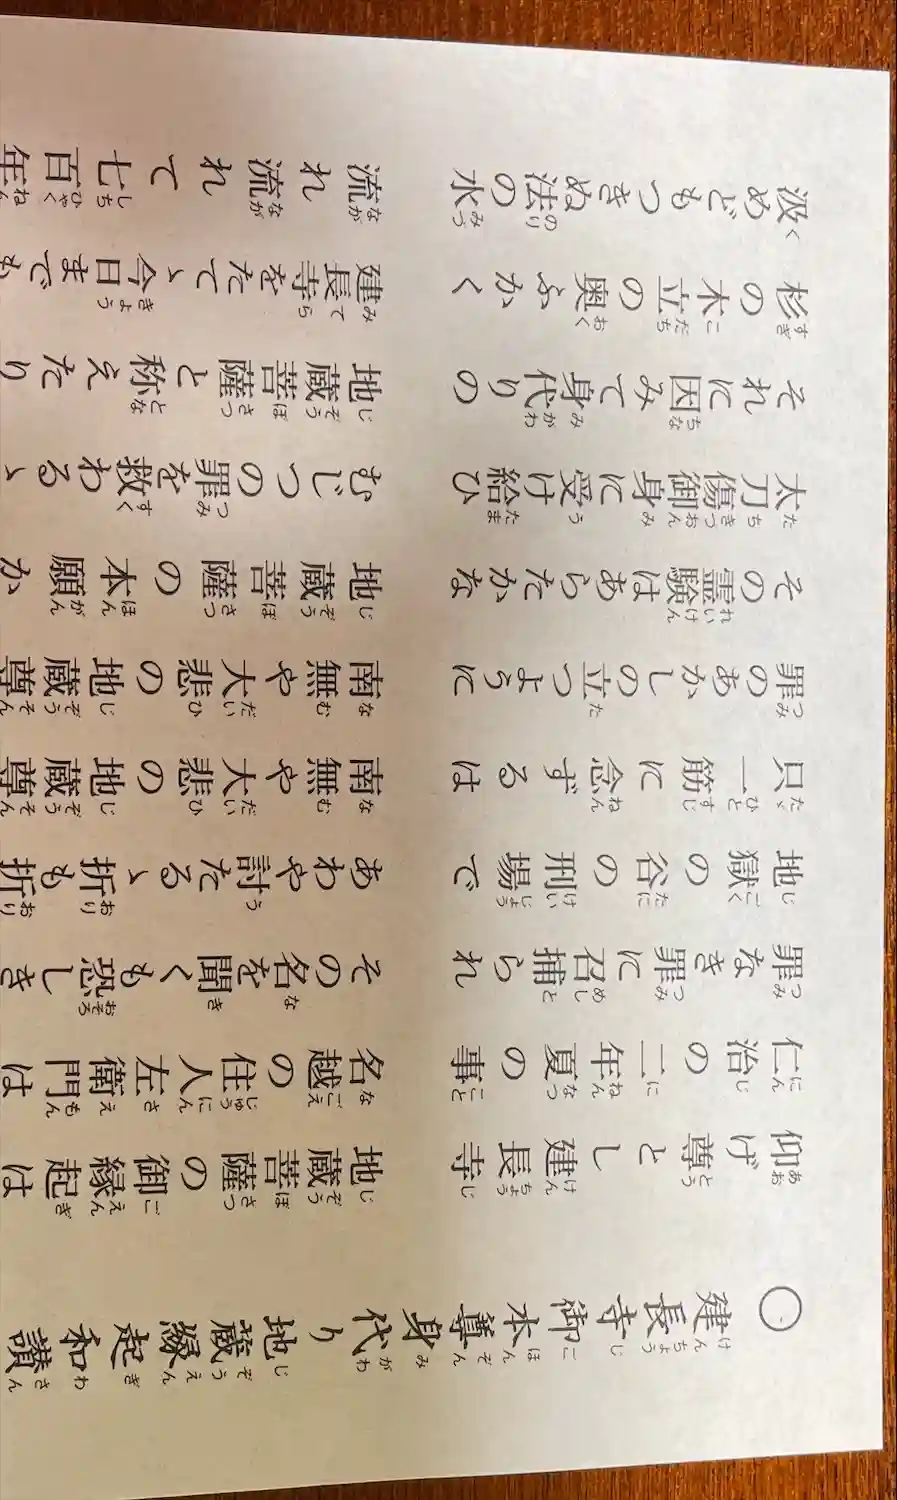 建長寺御本尊身代り地蔵縁起和讃
仰げ尊とし建長寺 地蔵菩薩の御縁起は
仁治の二年夏の事 名越の住人左衛門は
罪なき罪に召捕られ その名を聞くも恐しき
地獄の谷の刑場で あわや討たるゝ折も折
只一筋に念ずるは 南無や大悲の地蔵尊
罪のあかしの立つように 南無や大悲の地蔵尊
その霊験はあらたかな 地蔵菩薩の本願か
太刀傷御身に受け給ひ むじつの罪を救わるゝ
それに因みて身代りの 地蔵菩薩と称えたり
杉の木立の奥ふかく 建長寺をたてゝ今日までも
汲めどもつきぬ法の水 流れ流れて七百年